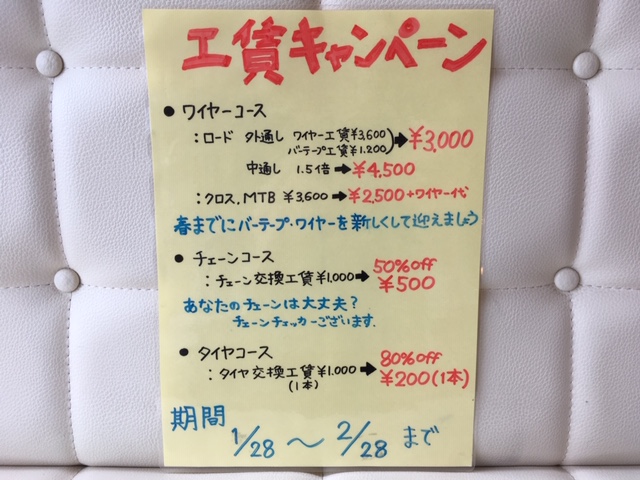 工賃キャンペーン
● ワイヤーコース
：ロード 外通し ワイヤー工賃¥3,600
バーテープ工賃¥1,200 ➡ ¥3,000
中通し 1.5倍 ➡ ¥4,500
：クロス, MTB ¥3,600 ➡ ¥2,500+ワイヤー代
春までにバーテープ・ワイヤーを新しくして迎えましょう
● チェーンコース
50%off
：チェーン交換工賃¥1,000 ➡ ¥500
あなたのチェーンは大丈夫？
チェーンチェッカーございます.
● タイヤコース
80%off
：タイヤ交換工賃¥1,000 ➡ ¥200(1本)
(1本)
期間
1/28 〜 2/28 まで